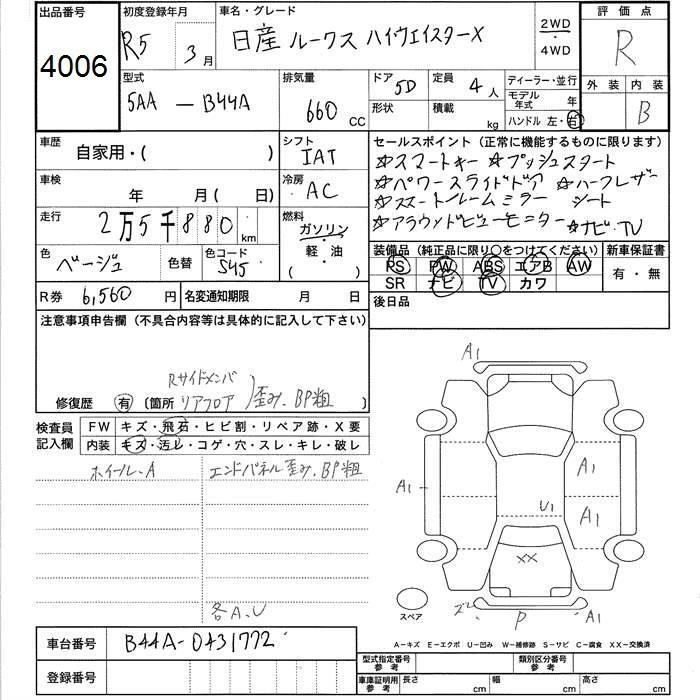 出品番号
4006
初度登録年月
R5 3月
車名・グレード
日産 ルークス ハイウェイスターX
2WD
4WD
評価点
R
外装 内装
B
型式
5AA - B44A
排気量
660 CC
ドア 5D
形状
定員 4 人
積載 kg
ディーラー・並行
モデル年式 年
ハンドル 左・右
車歴
自家用・( )
シフト
IAT
車検
年 月 ( 日)
冷房
AC
走行
2万5千880 km
燃料
ガソリン
・
軽・油
( )
色
ベージュ
色替
色コード
S45
R券 6,560 円
名変通知期限 月 日
セールスポイント(正常に機能するものに限ります)
☆スマートキー ☆プッシュスタート
☆パワースライドドア ☆ハーフレザー
☆スマートルームミラー シート
☆アラウンドビューモニター ☆ナビ・TV
装備品 (純正品に限り○をつけてください)
PS PW ABS エアB AW
SR ナビ TV カワ
新車保証書
有・無
後日品
注意事項申告欄(不具合内容等は具体的に記入して下さい)
修復歴 有 〔箇所 Rサイドメンバ
リアフロア 歪み、BP粗 〕
検査員
記入欄
FW キズ・飛石・ヒビ割・リペア跡・X要
内装 キズ・汚レ・コゲ・穴・スレ・キレ・破レ
ホイール・A
エンドパネル歪み、BP粗
各A、U
A1
A1
A1
A1
U1
XX
スペア
ズレ
P
A1
A-キズ E-エクボ U-凹み W-補修跡 S-サビ C-腐食 XX-交換済
車台番号 B44A-0431772
登録番号
型式指定番号
参考
類別区分番号
参考
車庫証明用
参考
長さ cm
幅 cm
高さ cm